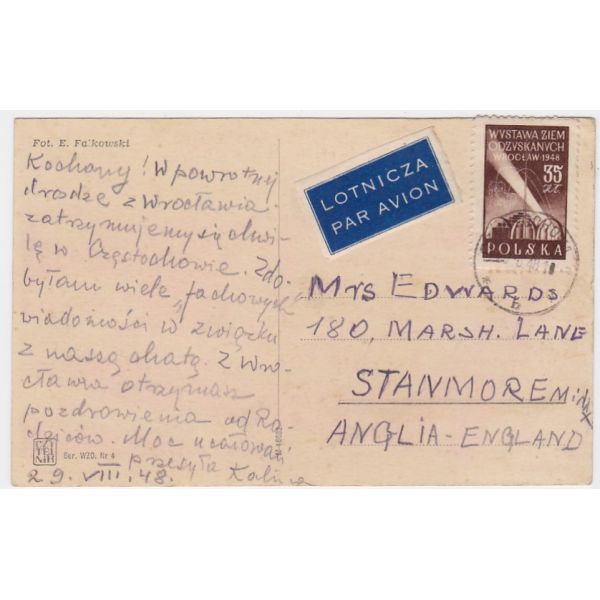 Fot. E. Falkowski
Kochany! W powrotnej
drodze z Wrocławia
zatrzymujemy się chwi-
lę w Częstochowie. Zdo-
byłam wiele „fachowych"
wiadomości w związku
z naszą chatą. Z Wro-
cławia otrzymasz
pozdrowienia od Ro-
dziców. Moc ucałowań
przesyła Kalina
29. VIII. 48.
Ser. WZO. Nr 4
LOTNICZA
PAR AVION
WYSTAWA ZIEM
ODZYSKANYCH
WROCŁAW 1948
35
zł
POLSKA
b
MRS EDWARDS
180, MARSH. LANE
STANMORE MIDDX
ANGLIA - ENGLAND